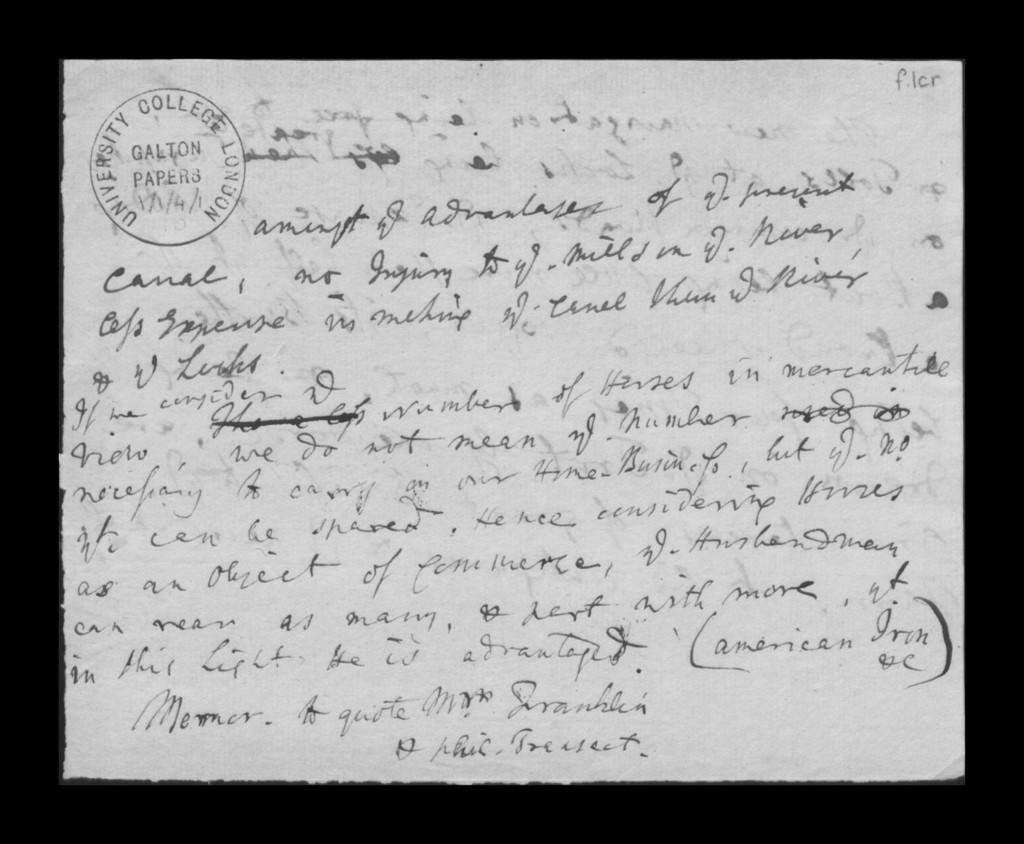 f.1cr
UNIVERSITY COLLEGE LONDON
GALTON
PAPERS
1/1/4/1
amingst ye advantages of ye. present
Canal, no Injury to ye. Mills on ye. River,
less Expense in making ye. Canal than ye River
& ye Locks.
If we consider ye
The a less Number of Horses in mercantile
View, we do not mean ye. Number used in
necessary to carry on our Home-Business, but ye. No.
yt. can be spared. Hence considering Horses
as an Object of Commerce, ye. Husbandman
can rear as many, & part with more, yt
in this Light He is advantaged. (American Iron
&c)
Memor. to quote Franklin
& phil. Transact.